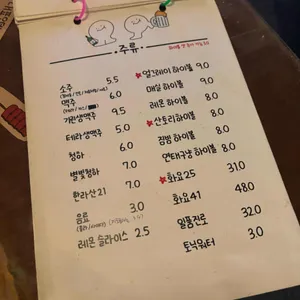 주류
소주 5.5
맥주 6.0
기린생맥주 9.5
테라생맥주 5.0
청하 6.0
별빛청하 7.0
한라산21 7.0
음료 3.0
레몬 슬라이스 2.5
★얼그레이 하이볼 9.0
매실 하이볼 8.0
레몬 하이볼 8.0
★산토리하이볼 9.0
짐빔 하이볼 8.0
연태구냥 하이볼 8.0
★화요25 31.0
화요41 48.0
일품진로 32.0
토닉워터 3.0